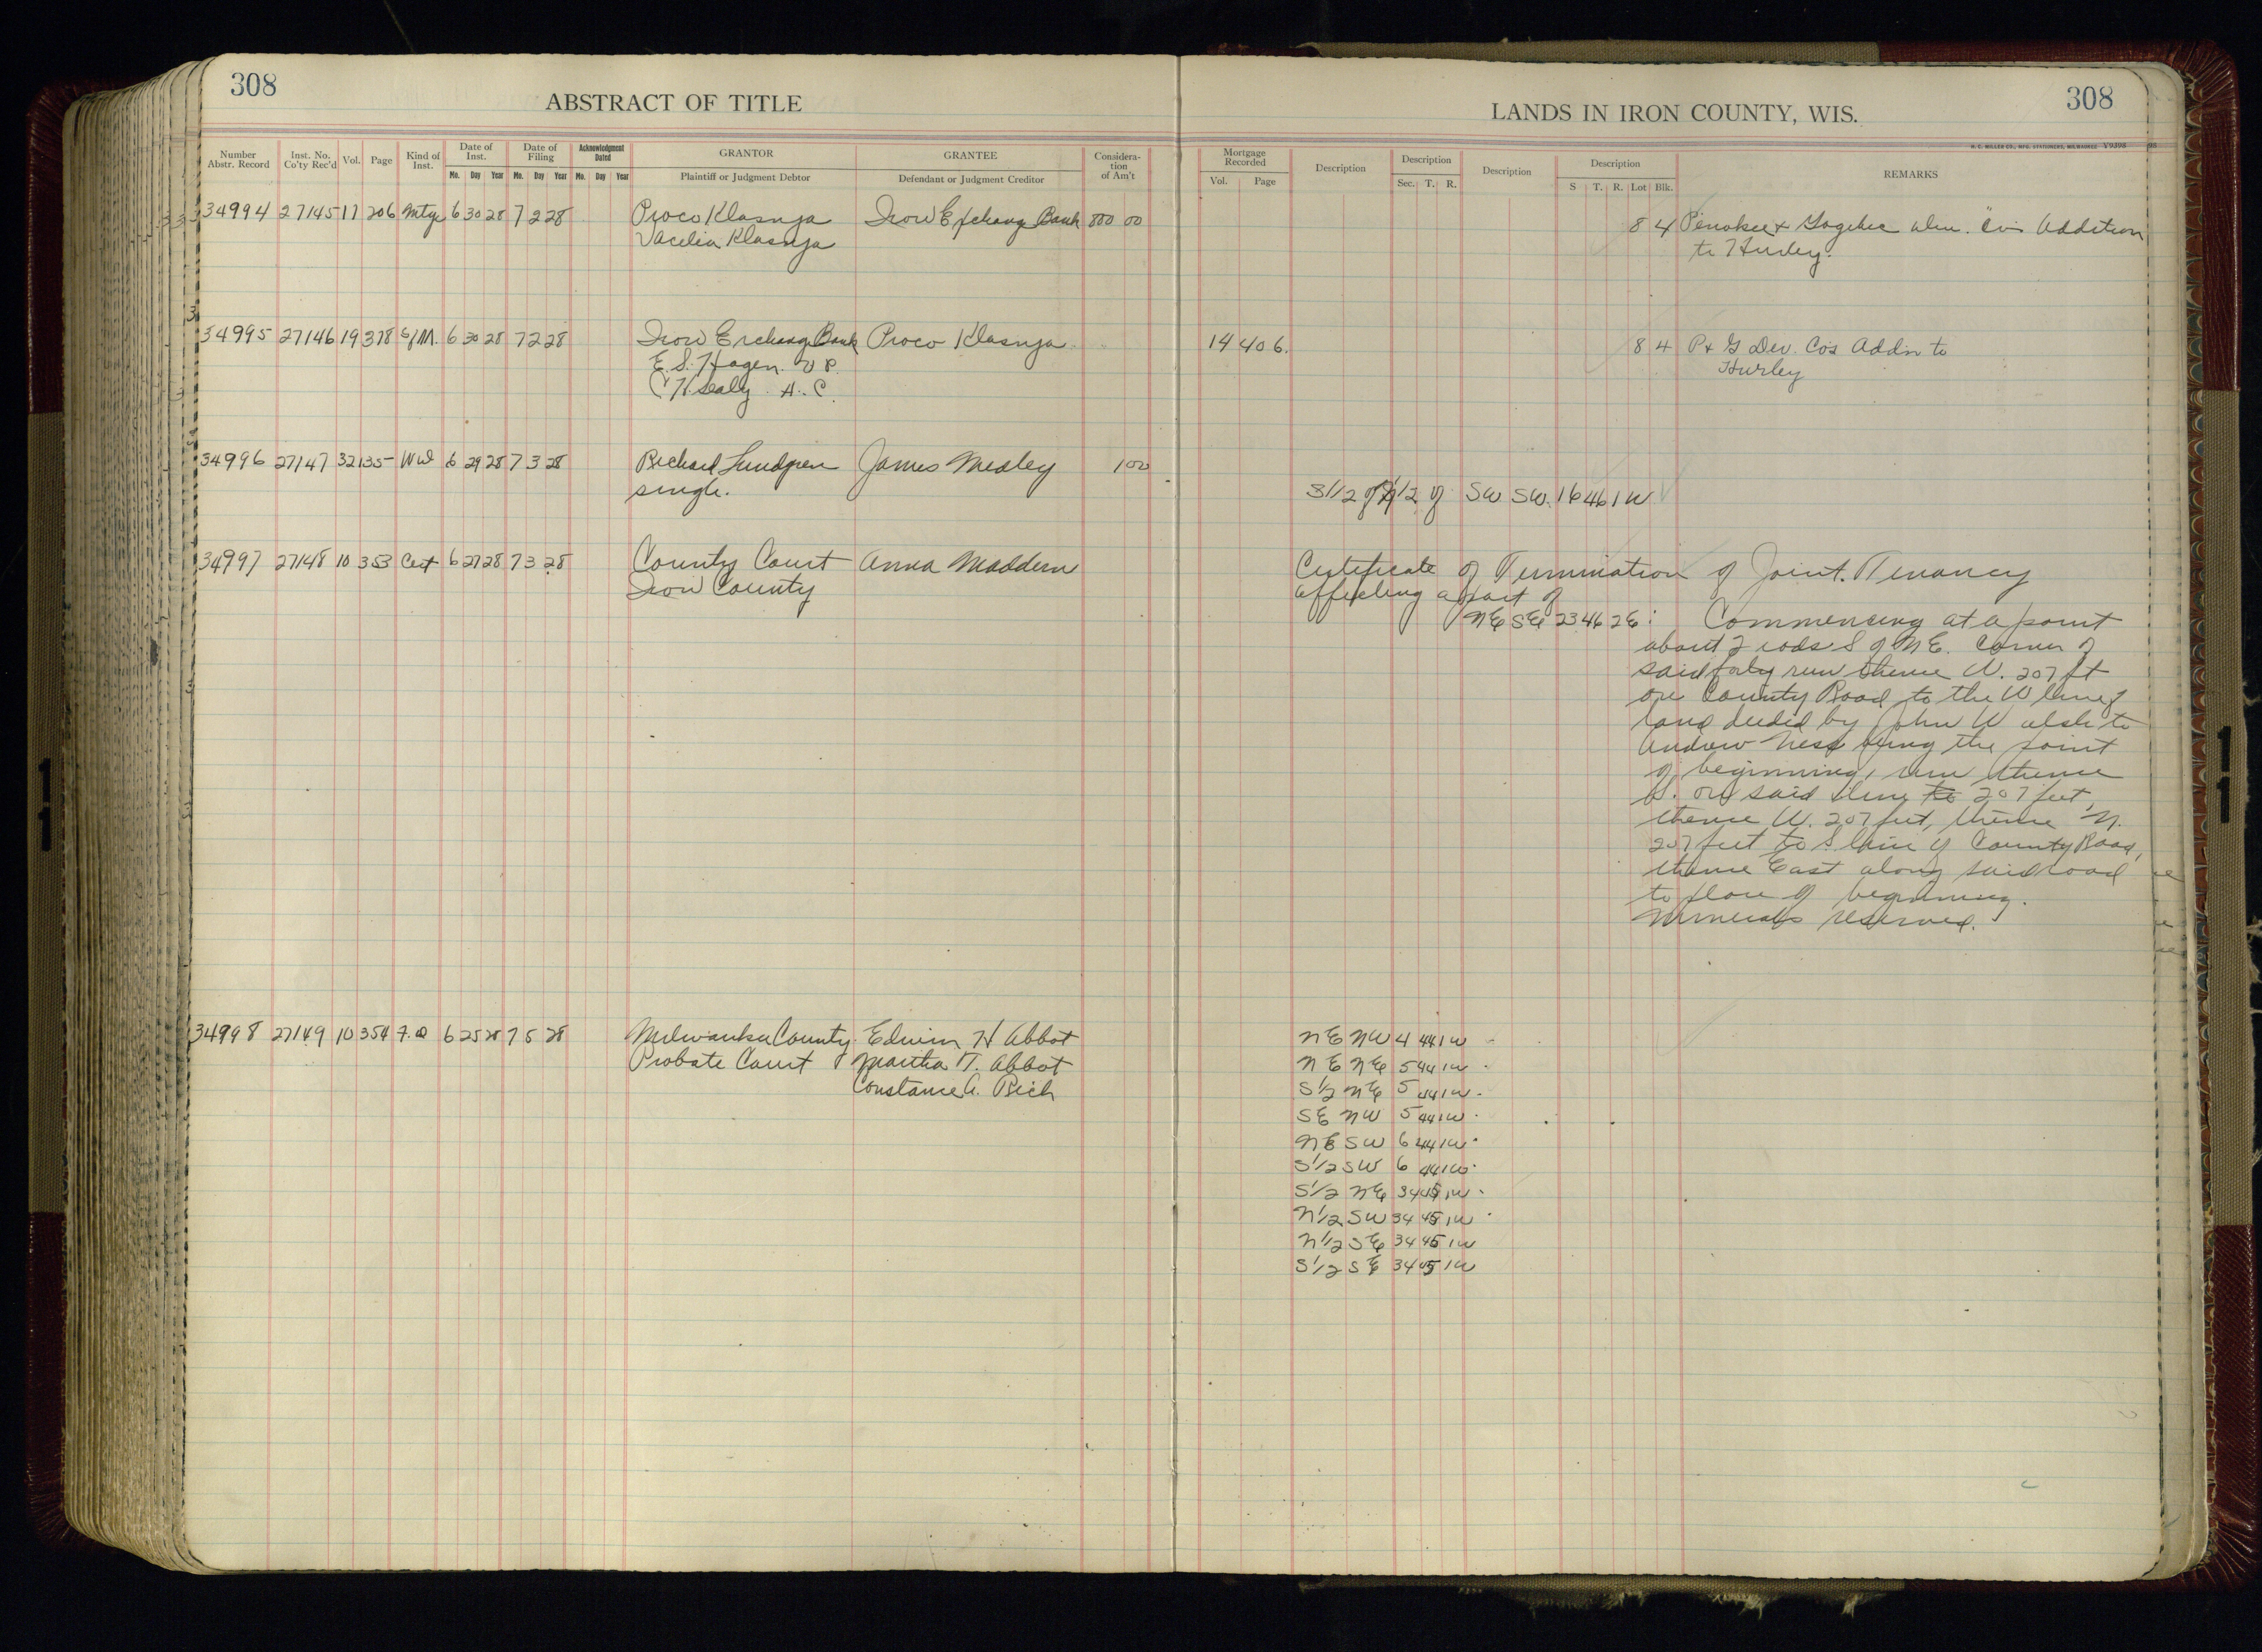 308
ABSTRACT OF TITLE
LANDS IN IRON COUNTY, WIS.
308
H. C. MILLER CO., MFG. STATIONERS, MILWAUKEE V9398
Number Abstr. Record Inst. No. Co'ty Rec'd Vol. Page Kind of Inst. Date of Inst. Mo. Day Year Date of Filing Mo. Day Year Acknowledgment Dated Mo. Day Year GRANTOR Plaintiff or Judgment Debtor GRANTEE Defendant or Judgment Creditor Consideration of Am't Mortgage Recorded Vol. Page Description Description Sec. T. R. Description Description S T. R. Lot Blk. REMARKS
34994 27145 17 206 Mtge 6 30 28 7 2 28 Proco Klasnja Iron Exchange Bank 800 00 8 4 Penokee & Gogebic Addition
Klasnja to Hurley.
34995 27146 19 378 S/M. 6 30 28 7 2 28 Iron Exchange Bank Proco Klasnja 14 406. 8 4 P & G Dev. Co's Add'n to
E. S. Hagen V P. Hurley
C H Sealy A. C.
34996 27147 32 135 WD 6 29 28 7 3 28 Richard Lundgren James Medley 1 00
single. S 1/2 of 1/2 of SW SW. 16 46 1 W
34997 27148 10 353 Cert 6 27 28 7 3 28 County Court Anna Maddern Certificate of Termination of Joint Tenancy
Iron County affecting a part of
NE SE 23 46 2E: Commencing at a point
about 2 rods S of N E. Corner of
said forty run thence W. 207 ft
on County Road to the W line of
land deeded by John Walsh to
Andrew Ness being the point
of beginning, run thence
S. on said line to 207 feet,
thence W. 207 feet, thence N.
207 feet to S line of County Road,
thence East along said road
to place of beginning.
Minerals reserved.
34998 27149 10 354 F. D 6 25 28 7 5 28 Milwaukee County Edwin H Abbot NE NW 4 44 1W
Probate Court Martha T. Abbot NE NE 5 44 1W
Constance A. Rich S 1/2 NE 5 44 1W
SE NW 5 44 1W
NE SW 6 44 1W
S 1/2 SW 6 44 1W
S 1/2 NE 34 45 1W
N 1/2 SW 34 45 1W
N 1/2 SE 34 45 1W
S 1/2 SE 34 45 1W